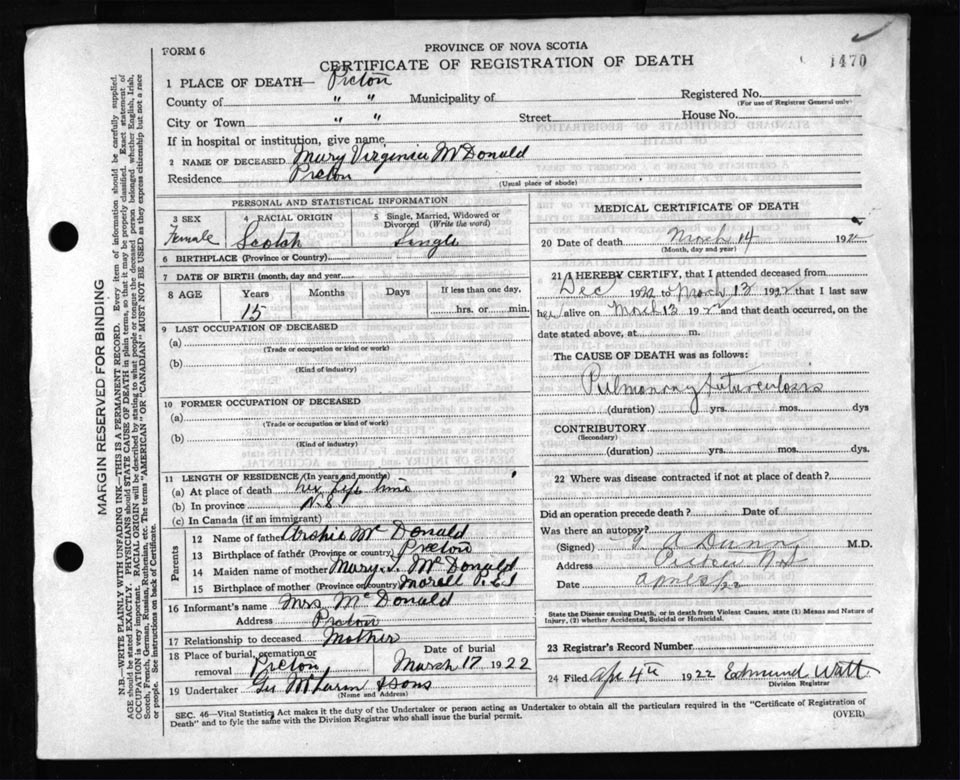 FORM 6
PROVINCE OF NOVA SCOTIA
CERTIFICATE OF REGISTRATION OF DEATH
1470
1 PLACE OF DEATH— Pictou
County of " " Municipality of
Registered No.
(For use of Registrar General only)
City or Town " " Street House No.
If in hospital or institution, give name
2 NAME OF DECEASED Mary Virginia McDonald
Residence Pictou
(Usual place of abode)
PERSONAL AND STATISTICAL INFORMATION
3 SEX Female
4 RACIAL ORIGIN Scotch
5 Single, Married, Widowed or Divorced (Write the word) Single
6 BIRTHPLACE (Province or Country)
7 DATE OF BIRTH (month, day and year)
8 AGE Years 15 Months Days If less than one day, hrs. or min.
9 LAST OCCUPATION OF DECEASED
(a)
(Trade or occupation or kind or work)
(b)
(Kind of industry)
10 FORMER OCCUPATION OF DECEASED
(a)
(Trade or occupation or kind or work)
(b)
(Kind of industry)
11 LENGTH OF RESIDENCE (In years and months)
(a) At place of death her life time
(b) In province N.S.
(c) In Canada (if an immigrant)
Parents
12 Name of father Archie McDonald
13 Birthplace of father (Province or country) Pictou
14 Maiden name of mother Mary J. McDonald
15 Birthplace of mother (Province or country) Morell P.E.I
16 Informant's name Mrs McDonald
Address Pictou
17 Relationship to deceased Mother
18 Place of burial, cremation or removal Pictou
Date of burial March 17 1922
19 Undertaker & Sons
(Name and Address)
MEDICAL CERTIFICATE OF DEATH
20 Date of death March 14 192
(Month, day and year)
21 I HEREBY CERTIFY, that I attended deceased from
Dec 192 to March 13 1922 that I last saw
her alive on March 13 1922 and that death occurred, on the
date stated above, at m.
The CAUSE OF DEATH was as follows:
Pulmonary Tuberculosis
(duration) yrs. mos. dys
CONTRIBUTORY
(Secondary)
(duration) yrs. mos. dys.
22 Where was disease contracted if not at place of death?
Did an operation precede death? Date of
Was there an autopsy?
(Signed) A Dunn M.D.
Address Pictou N.S
Date April 5/22
State the Disease causing Death, or in death from Violent Causes, state (1) Means and Nature of Injury, (2) whether Accidental, Suicidal or Homicidal.
23 Registrar's Record Number
24 Filed Apr 4th 1922 Edmund Watt
Division Registrar
SEC. 46—Vital Statistics Act makes it the duty of the Undertaker or person acting as Undertaker to obtain all the particulars required in the "Certificate of Registration of
Death" and to fyle the same with the Division Registrar who shall issue the burial permit.
(OVER)
MARGIN RESERVED FOR BINDING
N.B.—WRITE PLAINLY WITH UNFADING INK—THIS IS A PERMANENT RECORD. Every item of information should be carefully supplied.
AGE should be stated EXACTLY. PHYSICIANS should STATE CAUSE OF DEATH in plain terms, so that it may be properly classified. Exact statement of
OCCUPATION is very important. RACIAL ORIGIN will be described by stating to what people or tongue the deceased person belonged whether English, Irish,
Scotch, French, German, Russian, Ruthenian, etc. The terms "AMERICAN" OR "CANADIAN" MUST NOT BE USED as they express citizenship but not a race
or people. See instructions on back of Certificate.